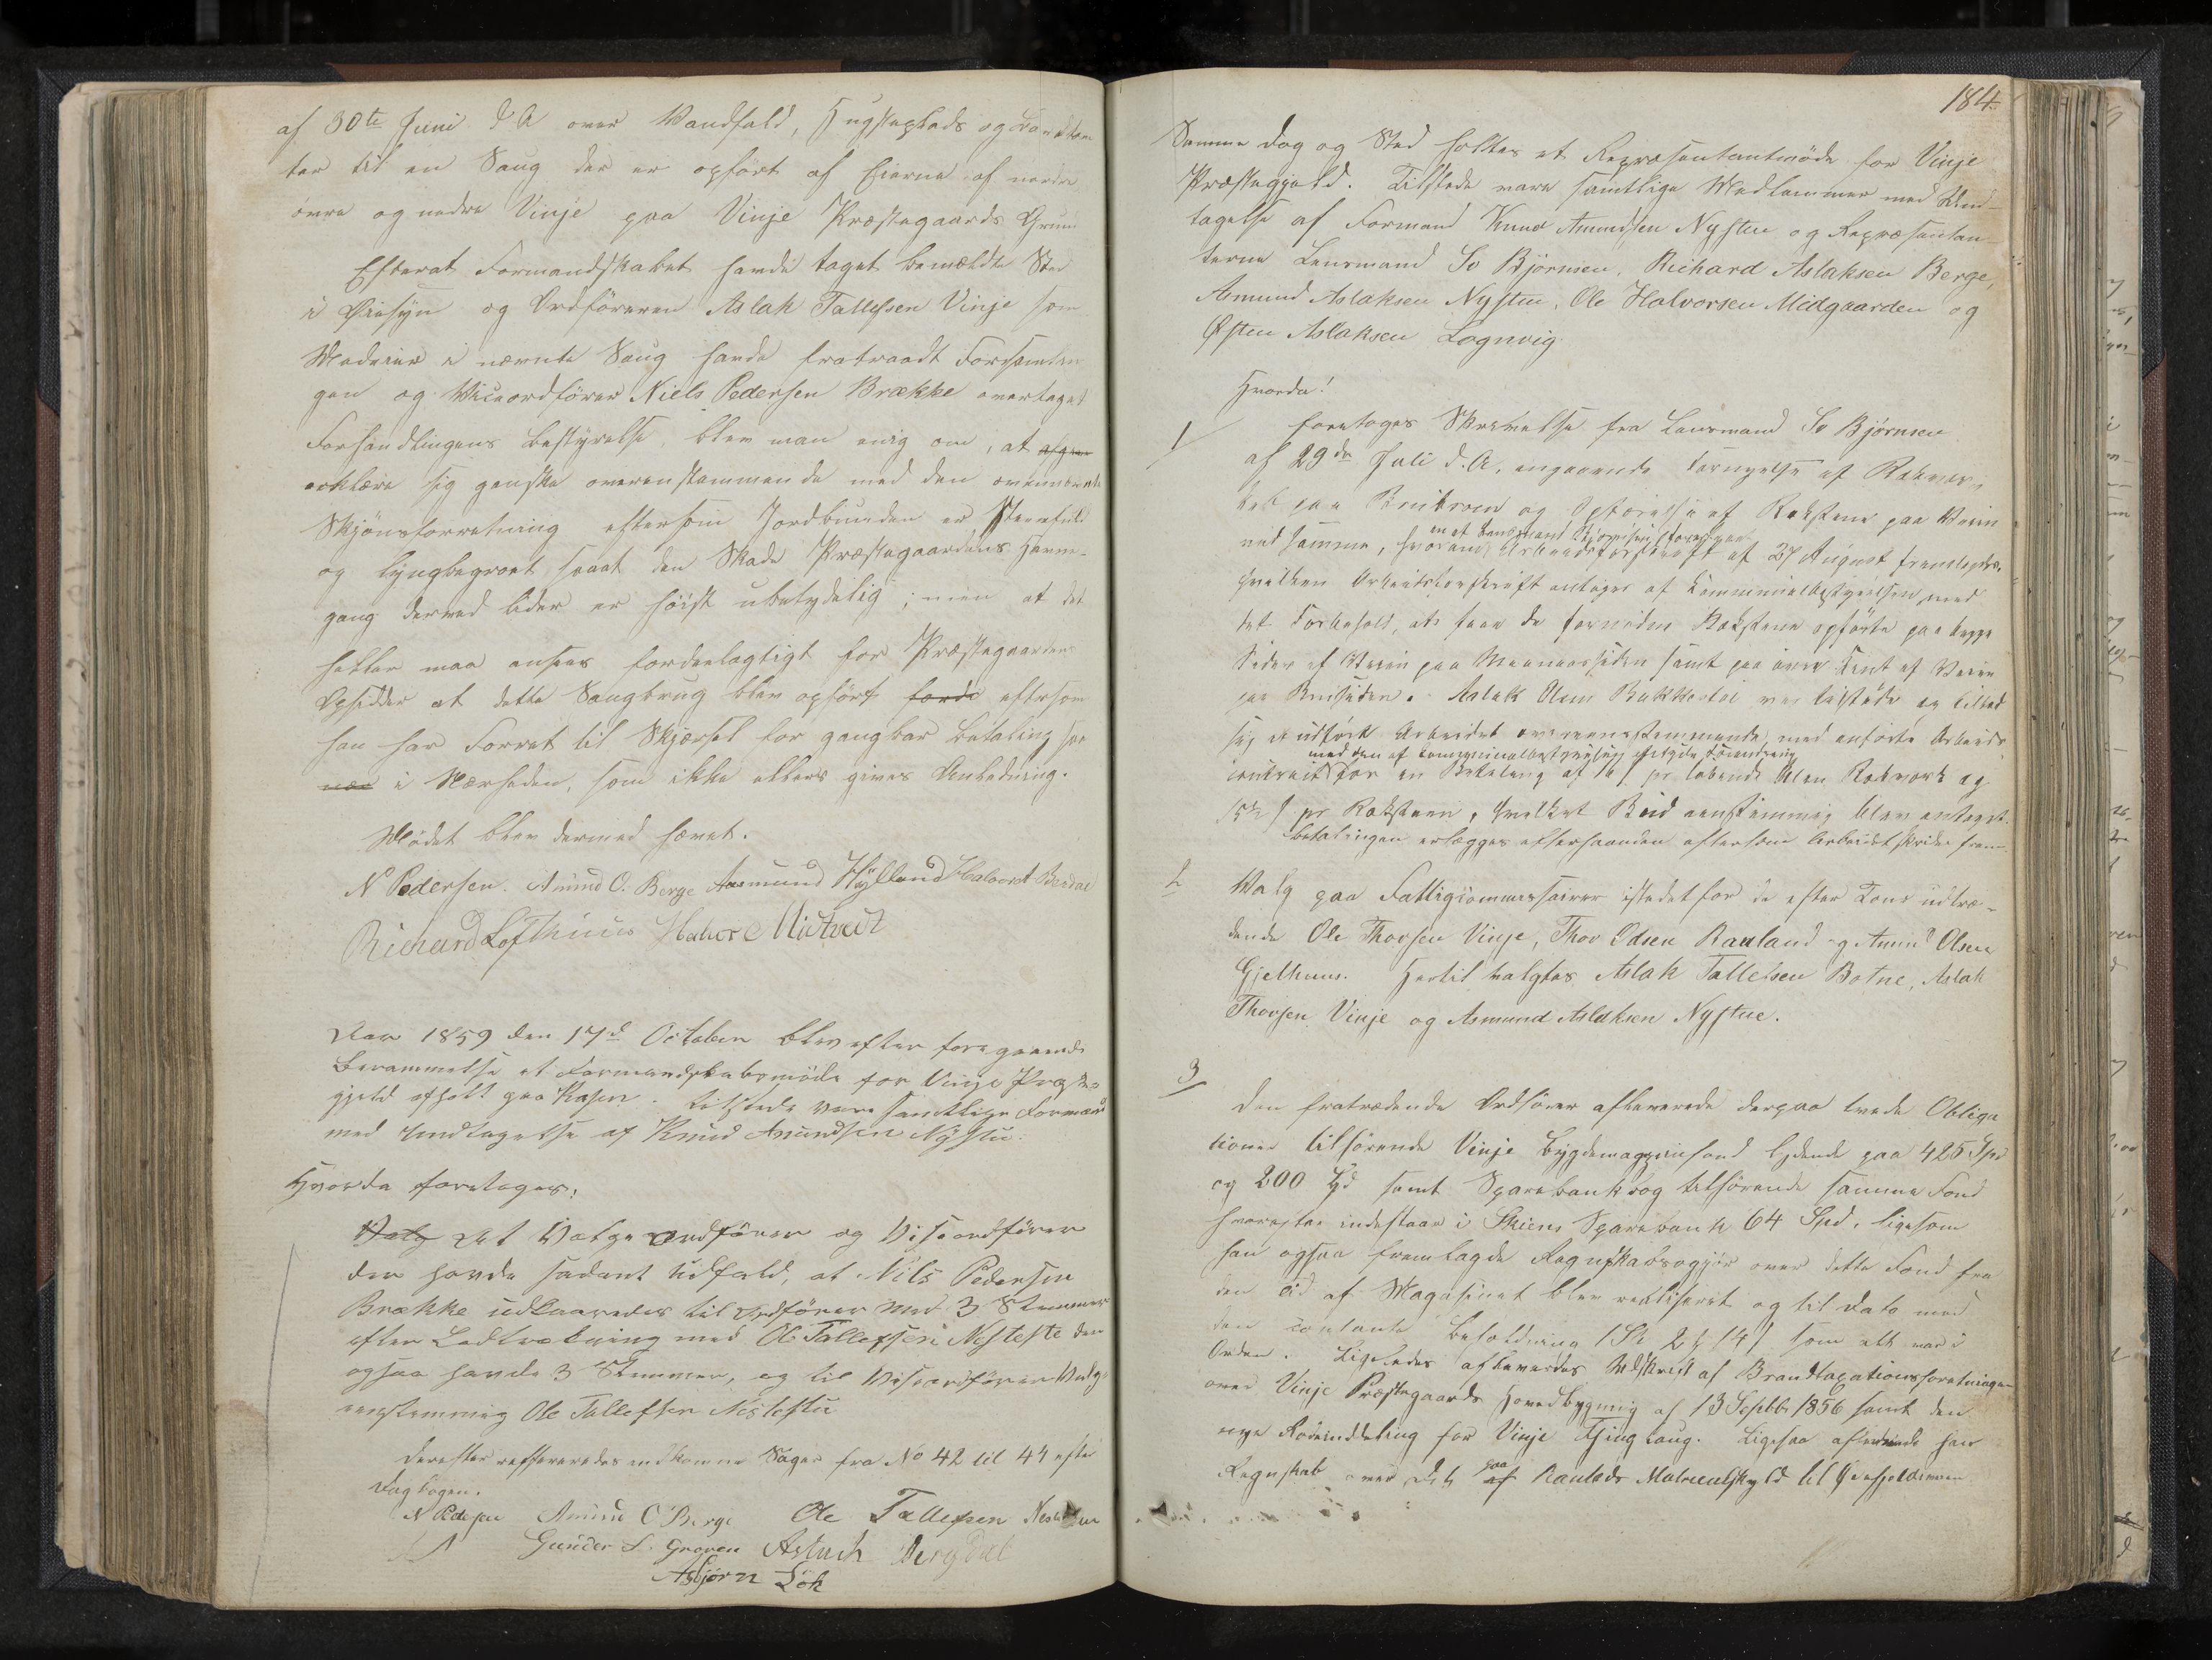 af 30te Juni d. A over Vandfald, Hugsteplads og
ter til en Saug der er opfört af Eierne af nordre
övre og nedre Vinje paa Vinje Præstegaards Grund
Efterat Formandskabet havde taget bemældte Sted
i Öiesyn og Ordföreren Aslak Tallefsen Vinje som
Medeier i nævnte Saug havde fratraadt Forsamlin
gen og Viceordförer Niels Pedersen Brække overtaget
Forhandlingens Bestyrelse, blev man enig om, at
erklære sig ganske overensstemmende med den ovennævnte
Skjönsforretning eftersom Jordbunden er Steenfuld
og lyngbegroet saaat den Skade Præstegaardens Havne-
gang derved lider er höist ubetydelig; men at det
heller maa ansees fordeelagtigt for Præstegaardens
Opsidder at dette Saugbrug blev opfört forde eftersom
han har Forret til Skjærsel for gangbar Betaling saa
nær i Nærheden, som ikke ellers gives Anledning.
Mödet blev dermed hævet.
N Pedersen. Amund O. Berge Aasmund Hylland Halvord Berdal
Richard Lofthuus
Aar 1859 den 17de October blev efter foregaaende
Berammelse et Formandskabsmöde for Vinje Præste-
gjeld afholt paa Kasen. Tilstede vare samtlige Formænd
med Undtagelse af Knud Amundsen Nystu.
Hvorda foretoges:
Valg At Vælge Ordförer og Viseordförer
der havde sadant Udfald, at Nils Pedersen
Brække udkaaredes til Ordförer med 3 Stemmer
efter Lodtrækning med Ole Tallefsen Nesteste den
ogsaa havde 3 Stemmer, og til Viseordförer Valgtes
eenstemmig Ole Tallefsen Nesteste
Derefter reffereredes indkomne Sager fra No 42 til 44 efter
Dagbogen.
N Pedersen Amund O Berge Ole Tallefsen
Gunder L. Groven Aslach Bergdal
Asbjörn Löh
184
Samme Dag og Sted holtes et Repræsentantmöde for Vinje
Præstegjeld. Tilstede vare samtlige Medlemmer med Und-
tagelse af Formand Knud Amundsen Nystue og Repræsentan-
terne Lensmand So Björnsen, Richard Aslaksen Berge,
Asmund Aslaksen Nystue, Ole Halvorsen Midgaarden og
Östen Aslaksen Lognvig.
Hvorda!
1/ Foretoges Skrivelse fra Lensmand So Björnsen
af 29de Juli d. A. angaaende Fornyelse af Rækvær-
ket paa Bruibroen og Opförelse af Rækstene paa Veien
en af Lensmand Björnsen forfattet
ved samme, hvorom Arbeidsforskrift af 27 August fremlagdes.
hvilken Arbeidsforskrift antages af Communalbestyrelsen med
det Forbehold, at faae de fornödne Rækstene opförte paa begge
Sider af Veien paa samt paa övre Kant af Veien
paa Bruisiden. Aslak Olsen Bakkestöl var tilstede og tilböd
sig at udföre Arbeidet overeensstemmende med anförte Arbeids
med den af Communalbestyrelsen tilföiede Forandring
contract for en Betaling af pr löbende Alen Rækværk og
pr Ræksteen, hvilket Bud eenstemmig blev antaget.
Betalingen erlægges efterhaanden eftersom Arbeidet skrider frem.
2 Valg paa Fattigcommissairer istedetfor de efter Tour udtræ-
dende Ole Thorsen Vinje, Thor Edsen Rauland og Amund Olsen
Gjelhuus. Hertil valgtes Aslak Tallefsen Botne, Aslak
Thorsen Vinje og Asmund Aslaksen Nystue.
3/ Den fratrædende Ordförer afleverede derpaa tvende Obliga
tioner tilhörende Vinje Bygdemagazinfond lydende paa 425 Spd
og 200 Spd samt Sparebankbog tilhörende samme Fond
hvorefter indestaar i Skiens Sparebank 64 Spd. ligesom
han ogsaa fremlagde Regnskabsopgjör over dette Fond fra
den Tid af Magasinet blev realiseret og til Dato med
den contante Beholdning som alt var i
Orden. Ligeledes afleverdes Udskrift af Brandtaxationsforetningen
over Vinje Præstegaards Hovedbygning af 13 Septbr 1856 samt den
nye Rodeinddeling for Vinje Thinglaug. Ligesaa han
paa
Regnskab over af Raulands Matrieulskyld til